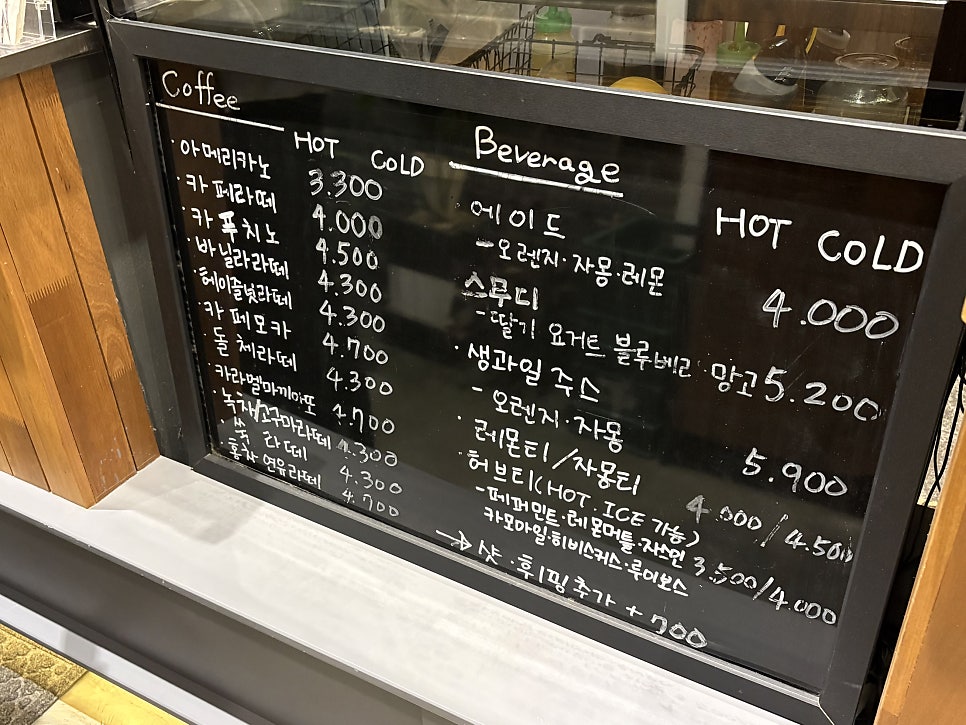 Coffee
HOT COLD
· 아메리카노 3.300
· 카페라떼 4.000
· 카푸치노 4.500
· 바닐라라떼 4.300
· 헤이즐넛라떼 4.300
· 카페모카 4.700
· 돌체라떼 4.300
· 카라멜마끼아또 4.700
· 녹차/고구마라떼 4.300
· 쑥 라떼 4.300
· 홍차 연유라떼 4.700
Beverage
HOT COLD
· 에이드
- 오렌지·자몽·레몬 4.000
스무디
- 딸기 요거트 블루베리 · 망고 5.200
· 생과일 주스
- 오렌지·자몽 5.900
· 레몬티/자몽티 4.000/4.500
· 허브티(HOT.ICE 가능)
- 페퍼민트·레몬머틀·자스민 3.500/4.000
카모마일·히비스커스·루이보스
→ 샷·휘핑추가 + 700